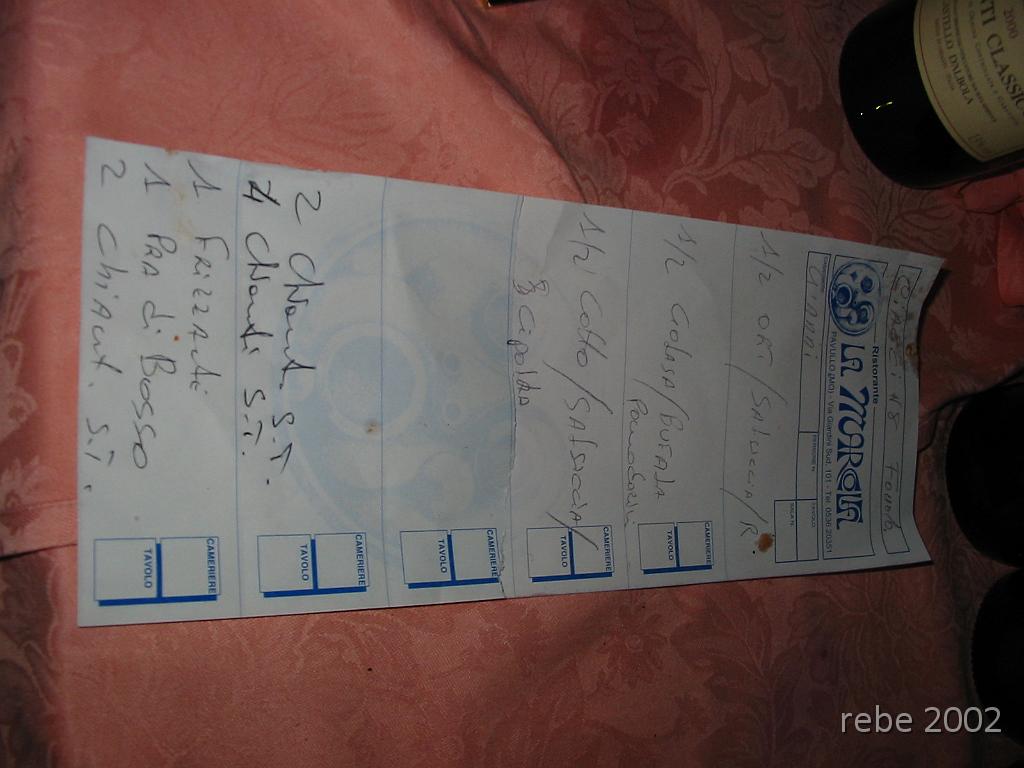 Ristorante
la mardla
PAVULLO (MO) - Via Giardini Sud, 101 - Tel. 0536 20351
PERSONE N.
TAVOLO
SALA N.
1/2 ORT / SALSICCIA / R.
1/2 GOLOSA / BUFALA
Pomodorini
CAMERIERE
TAVOLO
1/2 Cotto / SALSICCIA /
& Cipolla
CAMERIERE
TAVOLO
CAMERIERE
TAVOLO
2 Chiant. S.T.
4 Chianti S.T.
CAMERIERE
TAVOLO
1 FRIZZANTE
1 PRA di BOSSO
2 ChiAnt. S.T.
CAMERIERE
TAVOLO
2000
NTI CLASSIC
CASTELLO D'ALBOLA
rebe 2002